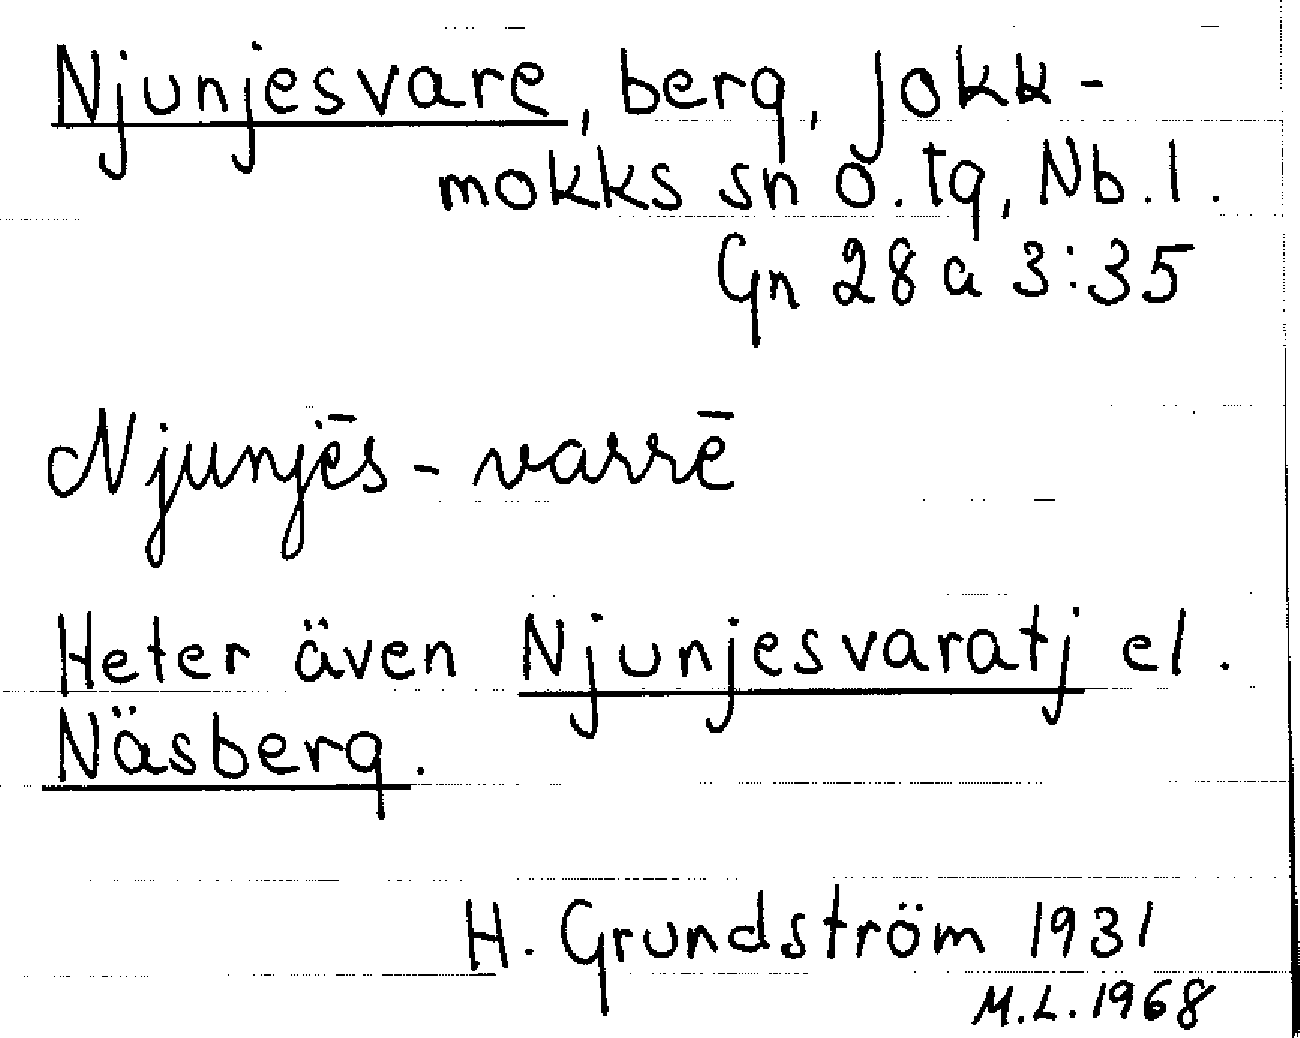 Njunjesvare, berg, Jokk-
mokks sn o. tg, Nb. l.
Gn 28 a 3:35
Njunjēs-varrē
Heter även Njunjesvaratj el.
Näsberg.
H. Grundström 1931
M.L. 1968